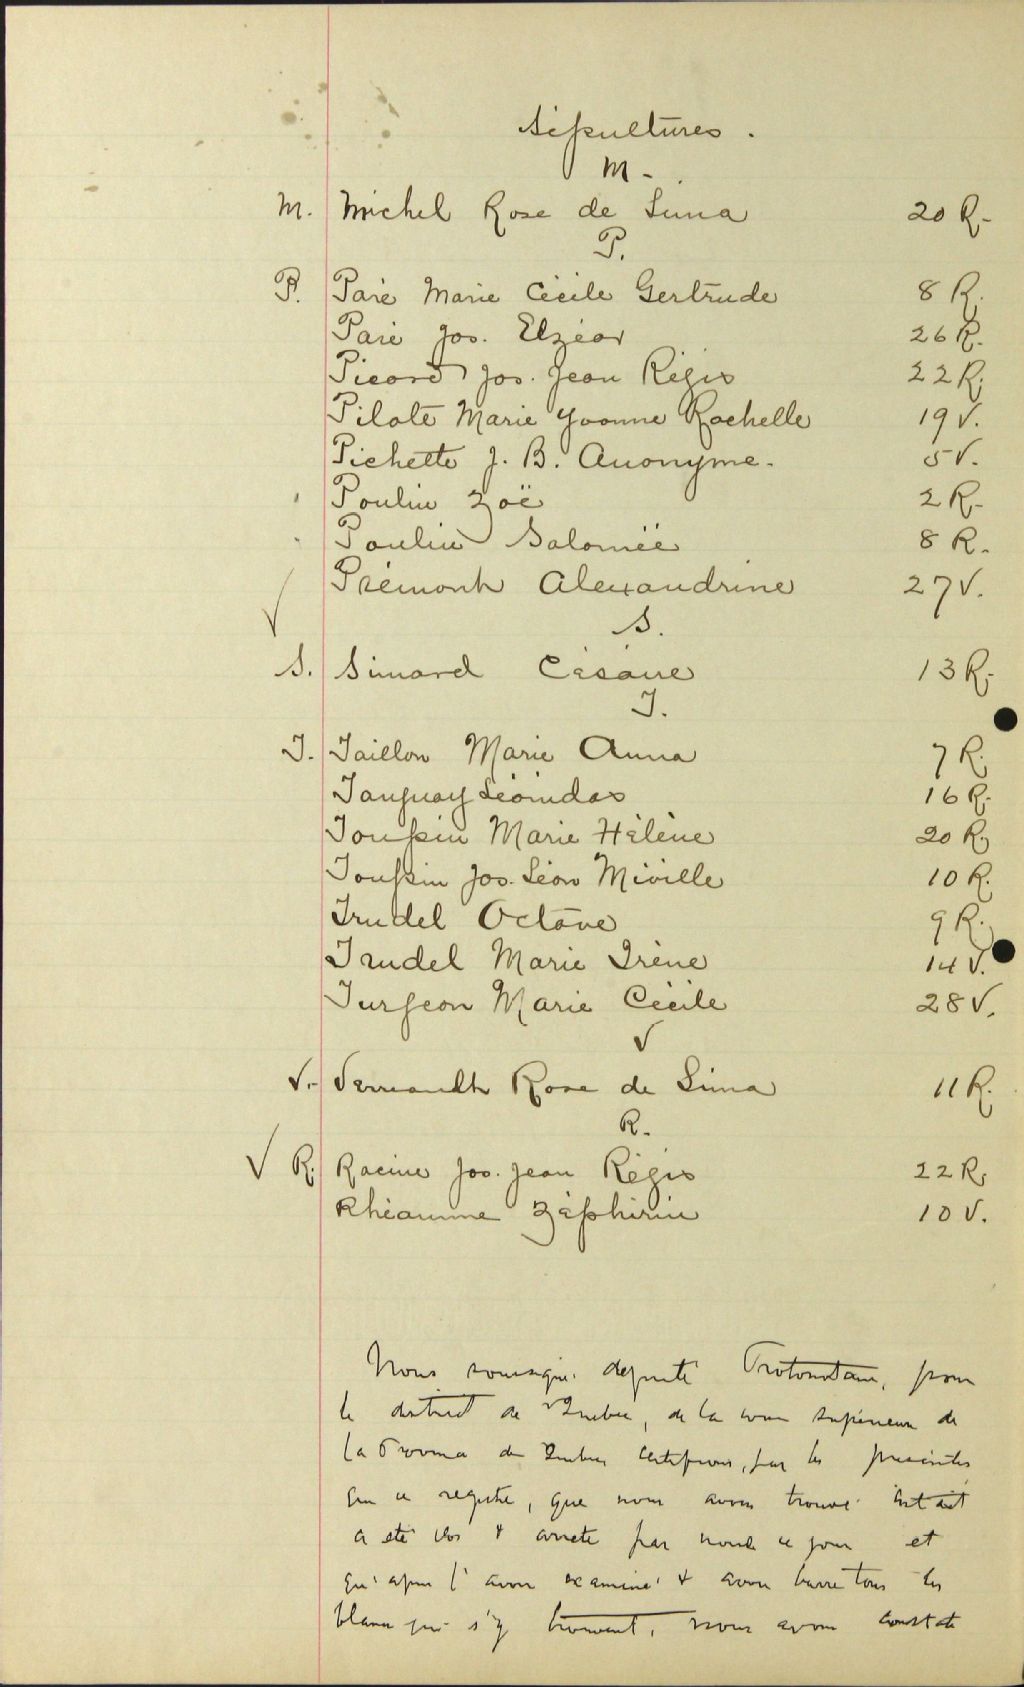 Sépultures.
M-
M. Michel Rose de Lima 20 R.
P.
P. Paré Marie Cécile Gertrude 8 R.
Paré Jos. Elzéar 26 R.
Picard Jos. Jean Régis 22 R.
Pilote Marie Yvonne Rachelle 19 V.
Pichette J. B. Anonyme. 5 V.
Poulin Zoë 2 R.
Poulin Salomée 8 R.
Prémont Alexandrine 27 V.
S.
S. Simard Césaire 13 R.
T.
T. Taillon Marie Anna 7 R.
Tanguay Léonidas 16 R.
Toupin Marie Hélène 20 R.
Toupin Jos. Léon Miville 10 R.
Trudel Octave 9 R.
Trudel Marie Irène 14 V.
Turgeon Marie Cécile 28 V.
V
V. Verreault Rose de Lima 11 R.
R.
R. Racine Jos. Jean Régis 22 R.
Rhéaume Zéphirin 10 V.
Nous soussigné député Protonotaire, pour
le district de Québec, de la cour supérieure de
la Province de Québec certifions, par les présentes
que ce registre, que nous avons trouvé
a été clos & arrêté par nous ce jour et
qu'après l'avoir examiné & avoir barré tous les
blancs qui s'y trouvent, nous avons constaté